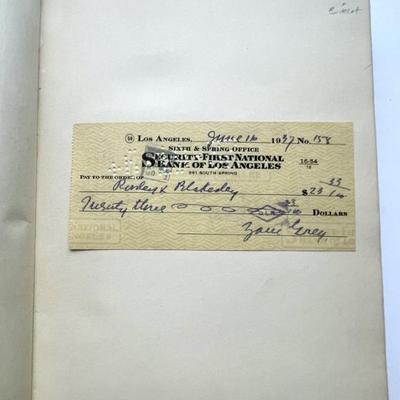 54 LOS ANGELES, June 16 1937 No. 158
SIXTH & SPRING OFFICE
SECURITY-FIRST NATIONAL 16-54
BANK OF LOS ANGELES
561 SOUTH SPRING
PAY TO THE ORDER OF & Blakeley $ 23 33/100
Twenty three 33/100 DOLLARS
Zane Grey